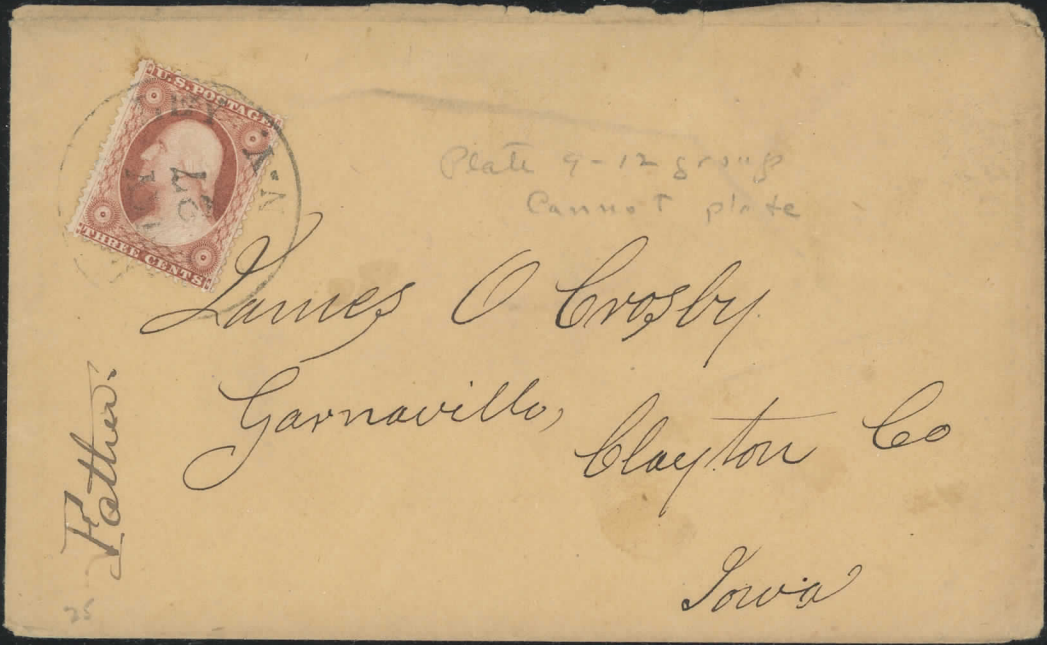 U.S. POSTAGE
THREE CENTS
N.Y.
27
Plate 9-12 group
Cannot plate
James O Crosby
Garnavillo,
Clayton Co
Iowa
Father.
25